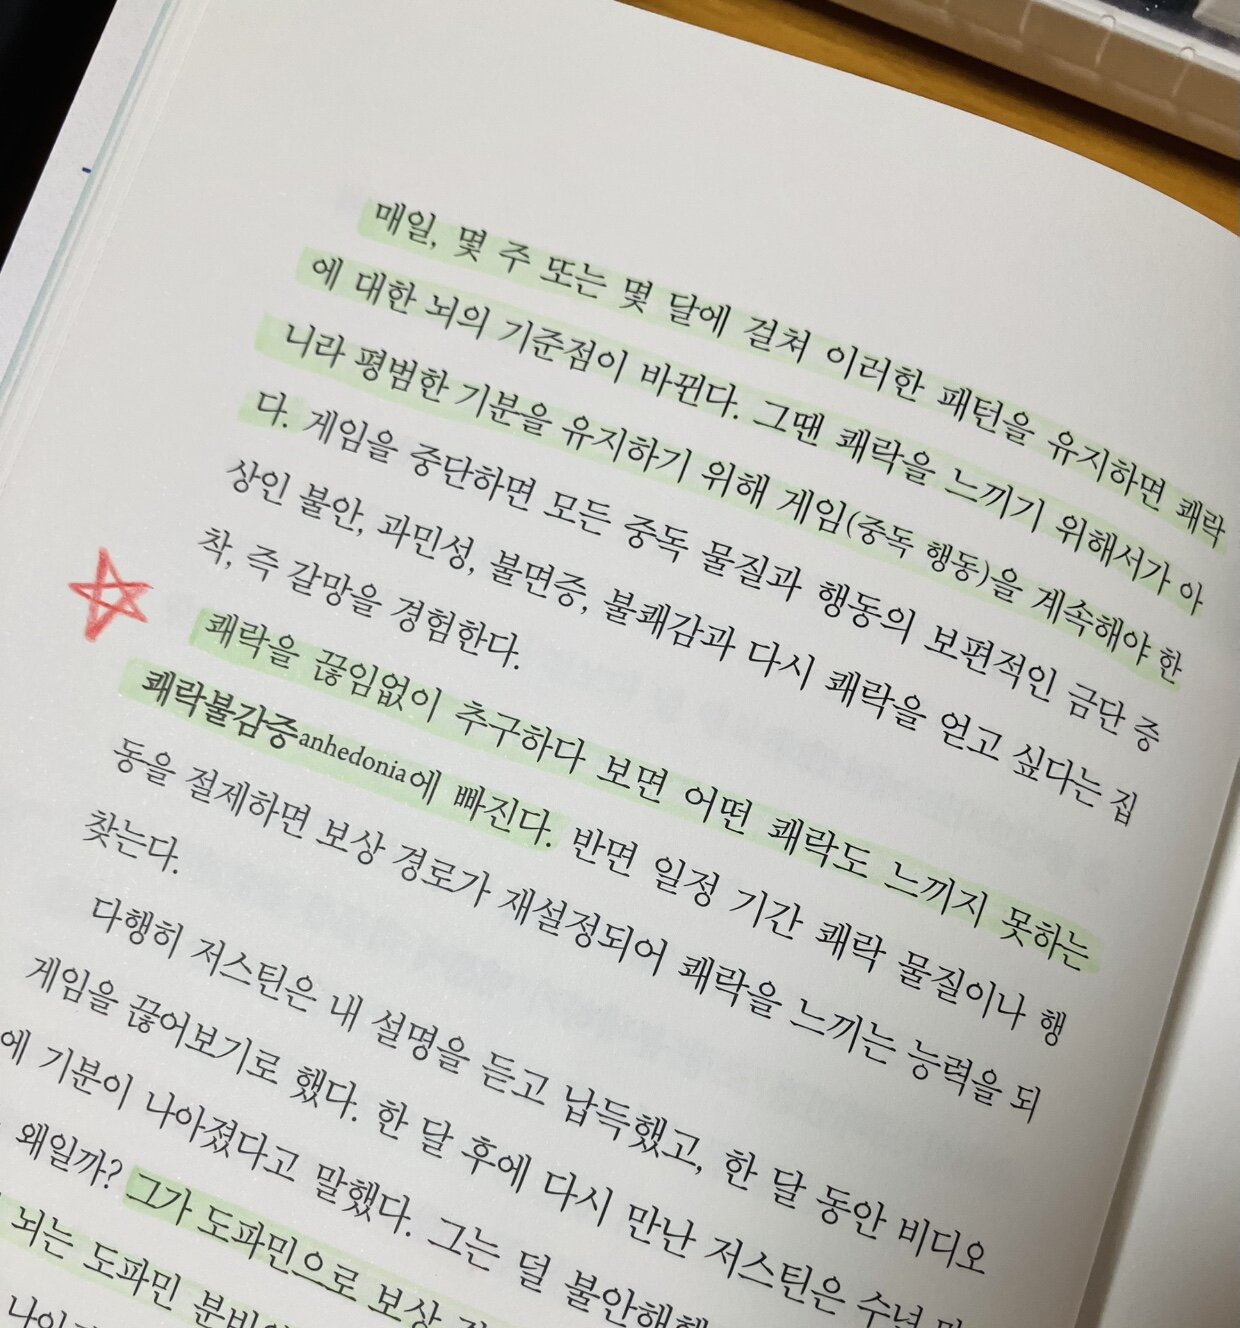 매일, 몇 주 또는 몇 달에 걸쳐 이러한 패턴을 유지하면 쾌락
에 대한 뇌의 기준점이 바뀐다. 그땐 쾌락을 느끼기 위해서가 아
니라 평범한 기분을 유지하기 위해 게임(중독 행동)을 계속해야 한
다. 게임을 중단하면 모든 중독 물질과 행동의 보편적인 금단 증
상인 불안, 과민성, 불면증, 불쾌감과 다시 쾌락을 얻고 싶다는 집
착, 즉 갈망을 경험한다.
쾌락을 끊임없이 추구하다 보면 어떤 쾌락도 느끼지 못하는
쾌락불감증anhedonia에 빠진다. 반면 일정 기간 쾌락 물질이나 행
동을 절제하면 보상 경로가 재설정되어 쾌락을 느끼는 능력을 되
찾는다.
다행히 저스틴은 내 설명을 듣고 납득했고, 한 달 동안 비디오
게임을 끊어보기로 했다. 한 달 후에 다시 만난 저스틴은 수년
에 기분이 나아졌다고 말했다. 그는 덜 불안해했
왜일까? 그가 도파민으로 보상
뇌는 도파민